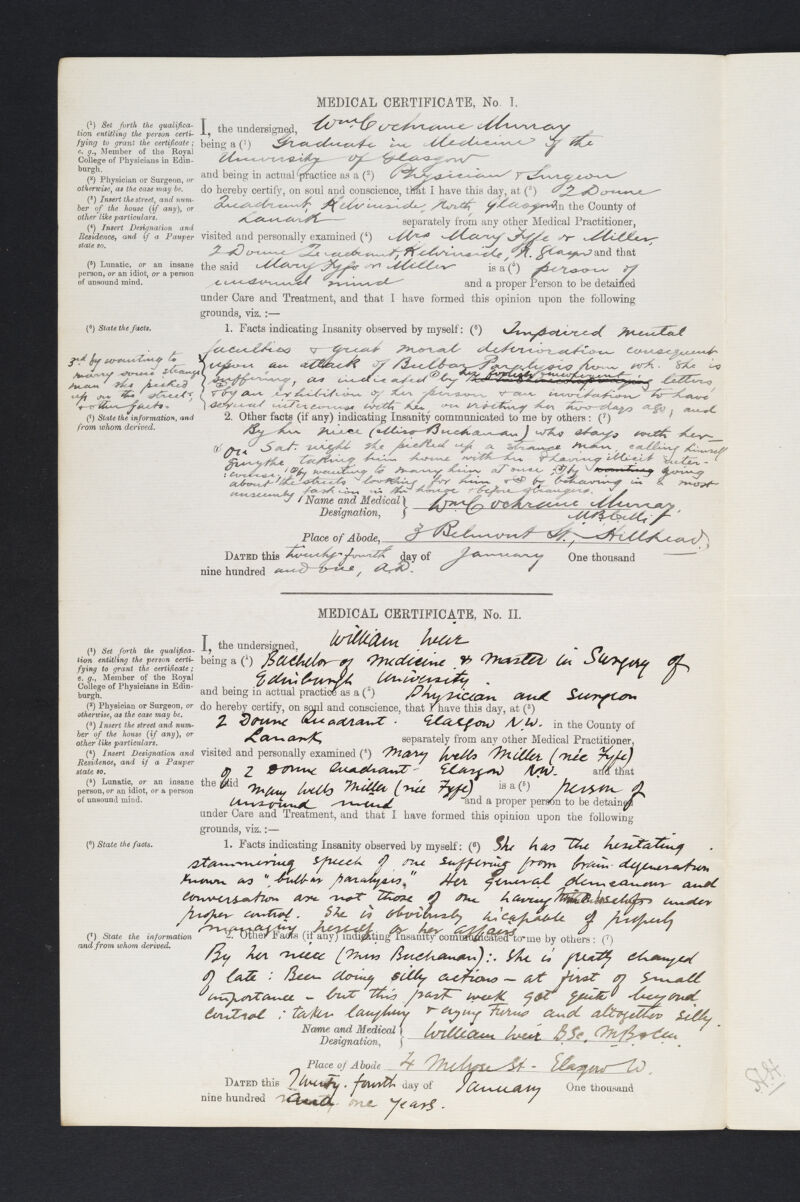 MEDICAL CERTIFICATE, No. I.
(¹) Set forth the qualifica-
tion entitling the person certi-
fying to grant the certificate;
e. g., Member of the Royal
College of Physicians in Edin-
burgh.
(²) Physician or Surgeon, or
otherwise, as the case may be.
(³) Insert the street, and num-
ber of the house (if any), or
other like particulars.
(⁴) Insert Designation and
Residence, and if a Pauper
state so.
(⁵) Lunatic, or an insane
person, or an idiot, or a person
of unsound mind.
(⁶) State the facts.
3rd by wanting to
marry some strange
man she picked
up on the streets
& other facts.
(⁷) State the information, and
from whom derived.
I, the undersigned, Wm Cochrane Murray
being a (¹) Graduate in Medicine of the
University of Glasgow
and being in actual practice as a (²) Physician & Surgeon
do hereby certify, on soul and conscience, that I have this day, at (³) 2 Doune
Quadrant, Kelvinside, North, Glasgow in the County of
Lanark separately from any other Medical Practitioner,
visited and personally examined (⁴) Mrs Mary Fyfe or Miller,
2 Doune Quadrant, Kelvinside, N. Glasgow and that
the said Mary Fyfe or Miller is a (⁵) person of
unsound mind and a proper Person to be detained
under Care and Treatment, and that I have formed this opinion upon the following
grounds, viz. :—
1. Facts indicating Insanity observed by myself: (⁶) Impaired mental
faculties & great moral deterioration consequent
upon an attack of Bulbar Paralysis from wh. she is
suffering, as indicated by her foolish letters,
& by an exhibition of her person & an invitation to have
sexual intercourse with her on visiting her two days ago, and
2. Other facts (if any) indicating Insanity communicated to me by others : (⁷)
By her niece (Miss Buchanan) who stays with her—
on Sat. night she picked up a strange man calling himself
Smythe, taking him home with her & having illicit inter-
course; by wanting to marry him at once; by going
about the streets looking for him & by behaving in a most
unseemly fashion in the house & before strangers.
Name and Medical Designation, Wm Cochrane Murray,
M.B.
Place of Abode, 3 Belmont St., Hillhead.
DATED this twenty-fourth day of January One thousand
nine hundred and one, A.D.
MEDICAL CERTIFICATE, No. II.
(¹) Set forth the qualifica-
tion entitling the person certi-
fying to grant the certificate;
e. g., Member of the Royal
College of Physicians in Edin-
burgh.
(²) Physician or Surgeon, or
otherwise, as the case may be.
(³) Insert the street and num-
ber of the house (if any), or
other like particulars.
(⁴) Insert Designation and
Residence, and if a Pauper
state so.
(⁵) Lunatic, or an insane
person, or an idiot, or a person
of unsound mind.
(⁶) State the facts.
(⁷) State the information
and from whom derived.
I, the undersigned, William Weir
being a (¹) Bachelor of Medicine & Master in Surgery of
Edinburgh University.
and being in actual practice as a (²) Physician and Surgeon
do hereby certify, on soul and conscience, that I have this day, at (³)
2 Doune Quadrant. Glasgow N.W. in the County of
Lanark separately from any other Medical Practitioner,
visited and personally examined (⁴) Mary Wells Miller (née Fyfe)
of 2 Doune Quadrant - Glasgow N.W. and that
the said Mary Wells Miller (née Fyfe) is a (⁵) person of
unsound mind and a proper person to be detained
under Care and Treatment, and that I have formed this opinion upon the following
grounds, viz. :—
1. Facts indicating Insanity observed by myself: (⁶) She has the hesitating
stammering speech of one suffering from brain-degeneration
known as "bulbar paralysis." Her general demeanour and
conversation are not those of one having under
proper control. She is obviously incapable of properly
managing herself or her affairs.
2. Other Facts (if any) indicating Insanity communicated to me by others : (⁷)
By her niece (Miss Buchanan):. She is greatly changed
of late: Been doing silly actions — at first of small
importance — but this past week got quite beyond
control: takes laughing & crying turns and altogether silly.
Name and Medical Designation, William Weir B.Sc. M.B. & C.M.
Place of Abode 4 Melrose St - Glasgow W.
DATED this Twenty-fourth day of January One thousand
nine hundred and one years.